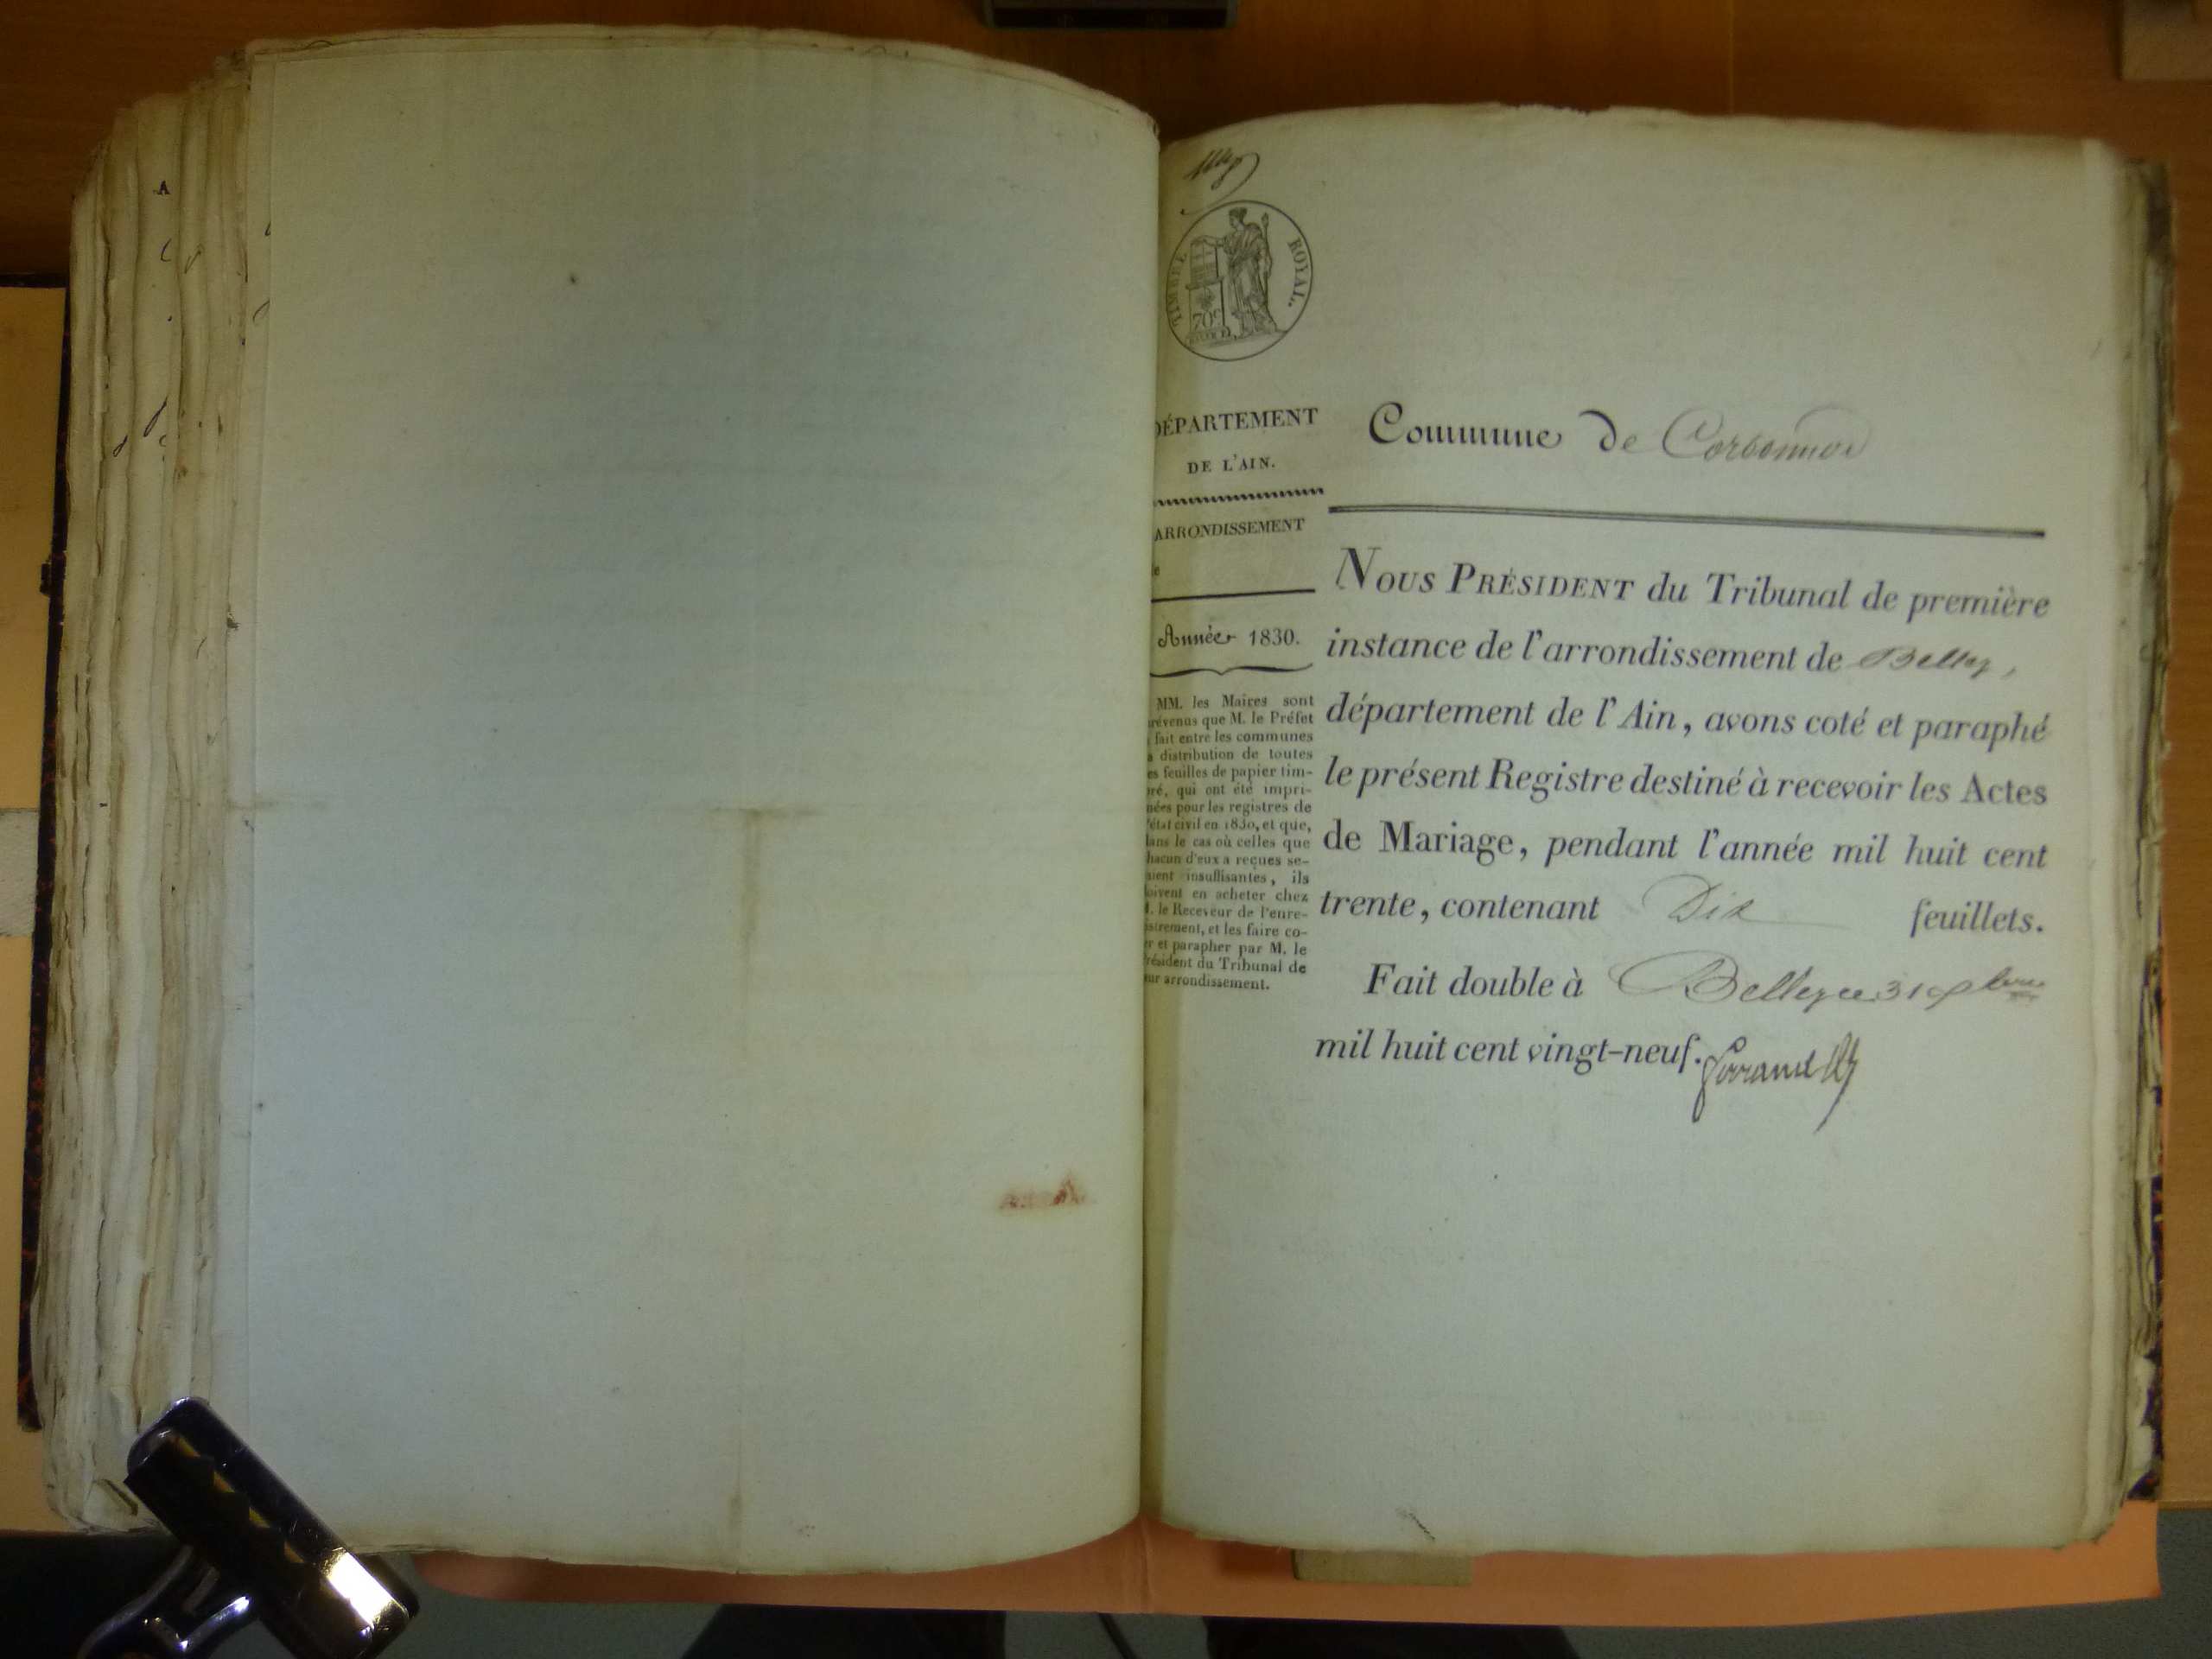 A
TIMBRE ROYAL.
70c
DÉPARTEMENT
DE L'AIN.
ARRONDISSEMENT
Année 1830.
MM. les Maires sont
prévenus que M. le Préfet
fait entre les communes
distribution de toutes
es feuilles de papier tim-
bré, qui ont été impri-
mées pour les registres de
l'état civil en 1830, et que,
dans le cas où celles que
chacun d'eux a reçues se-
raient insuffisantes, ils
doivent en acheter chez
M. le Receveur de l'enre-
istrement, et les faire co-
er et parapher par M. le
Président du Tribunal de
eur arrondissement.
Commune de Corbonod
NOUS PRÉSIDENT du Tribunal de première
instance de l'arrondissement de Belley,
département de l'Ain, avons coté et paraphé
le présent Registre destiné à recevoir les Actes
de Mariage, pendant l'année mil huit cent
trente, contenant Dix feuillets.
Fait double à Belley ce 31 Xbre
mil huit cent vingt-neuf.